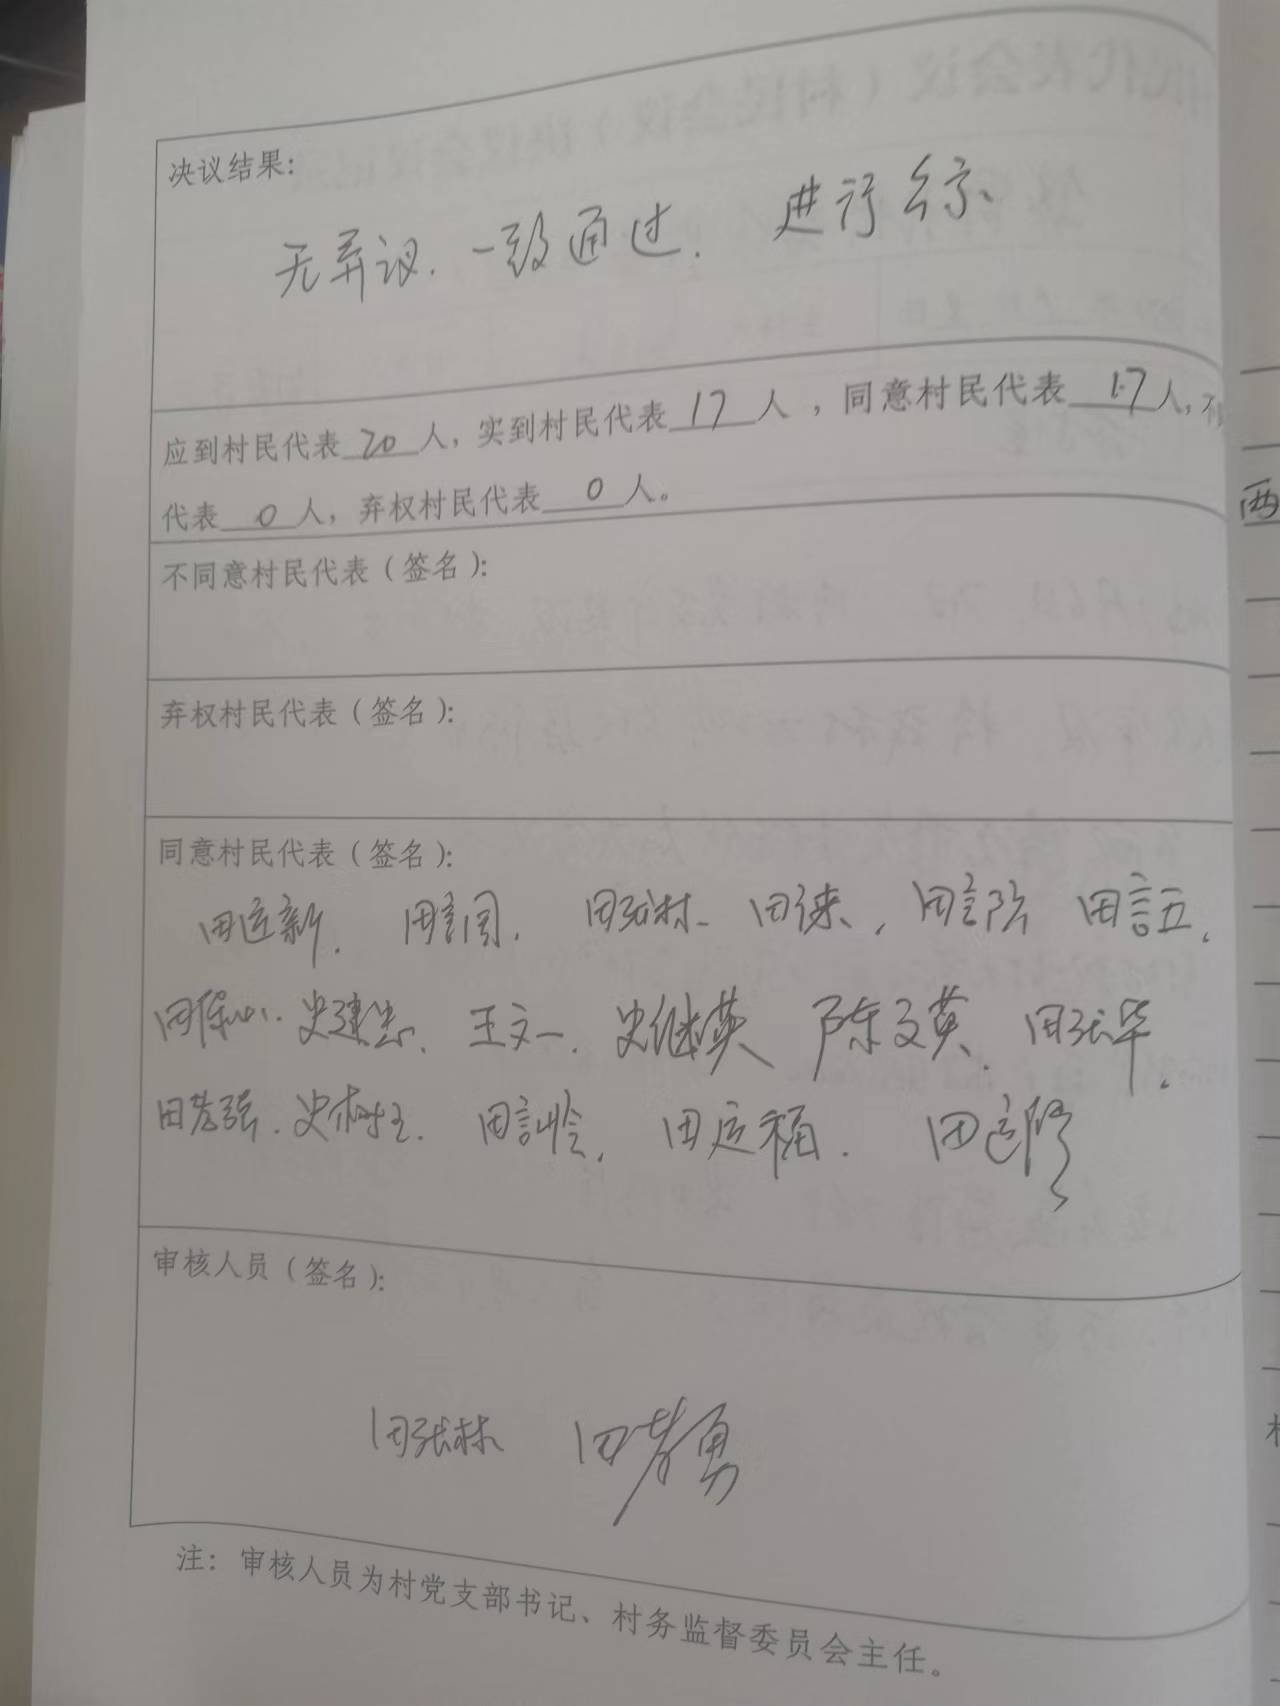 决议结果：
无异议．一致通过．进行公示．
应到村民代表 20 人，实到村民代表 17 人，同意村民代表 17 人，不
代表 0 人，弃权村民代表 0 人。
不同意村民代表（签名）：
弃权村民代表（签名）：
同意村民代表（签名）：
田运新．田张林．田
史建忠．王文一．史继英 陈文英．田张华．
史树立．田运福．田运修
审核人员（签名）：
田张林 田孝勇
注：审核人员为村党支部书记、村务监督委员会主任。
西